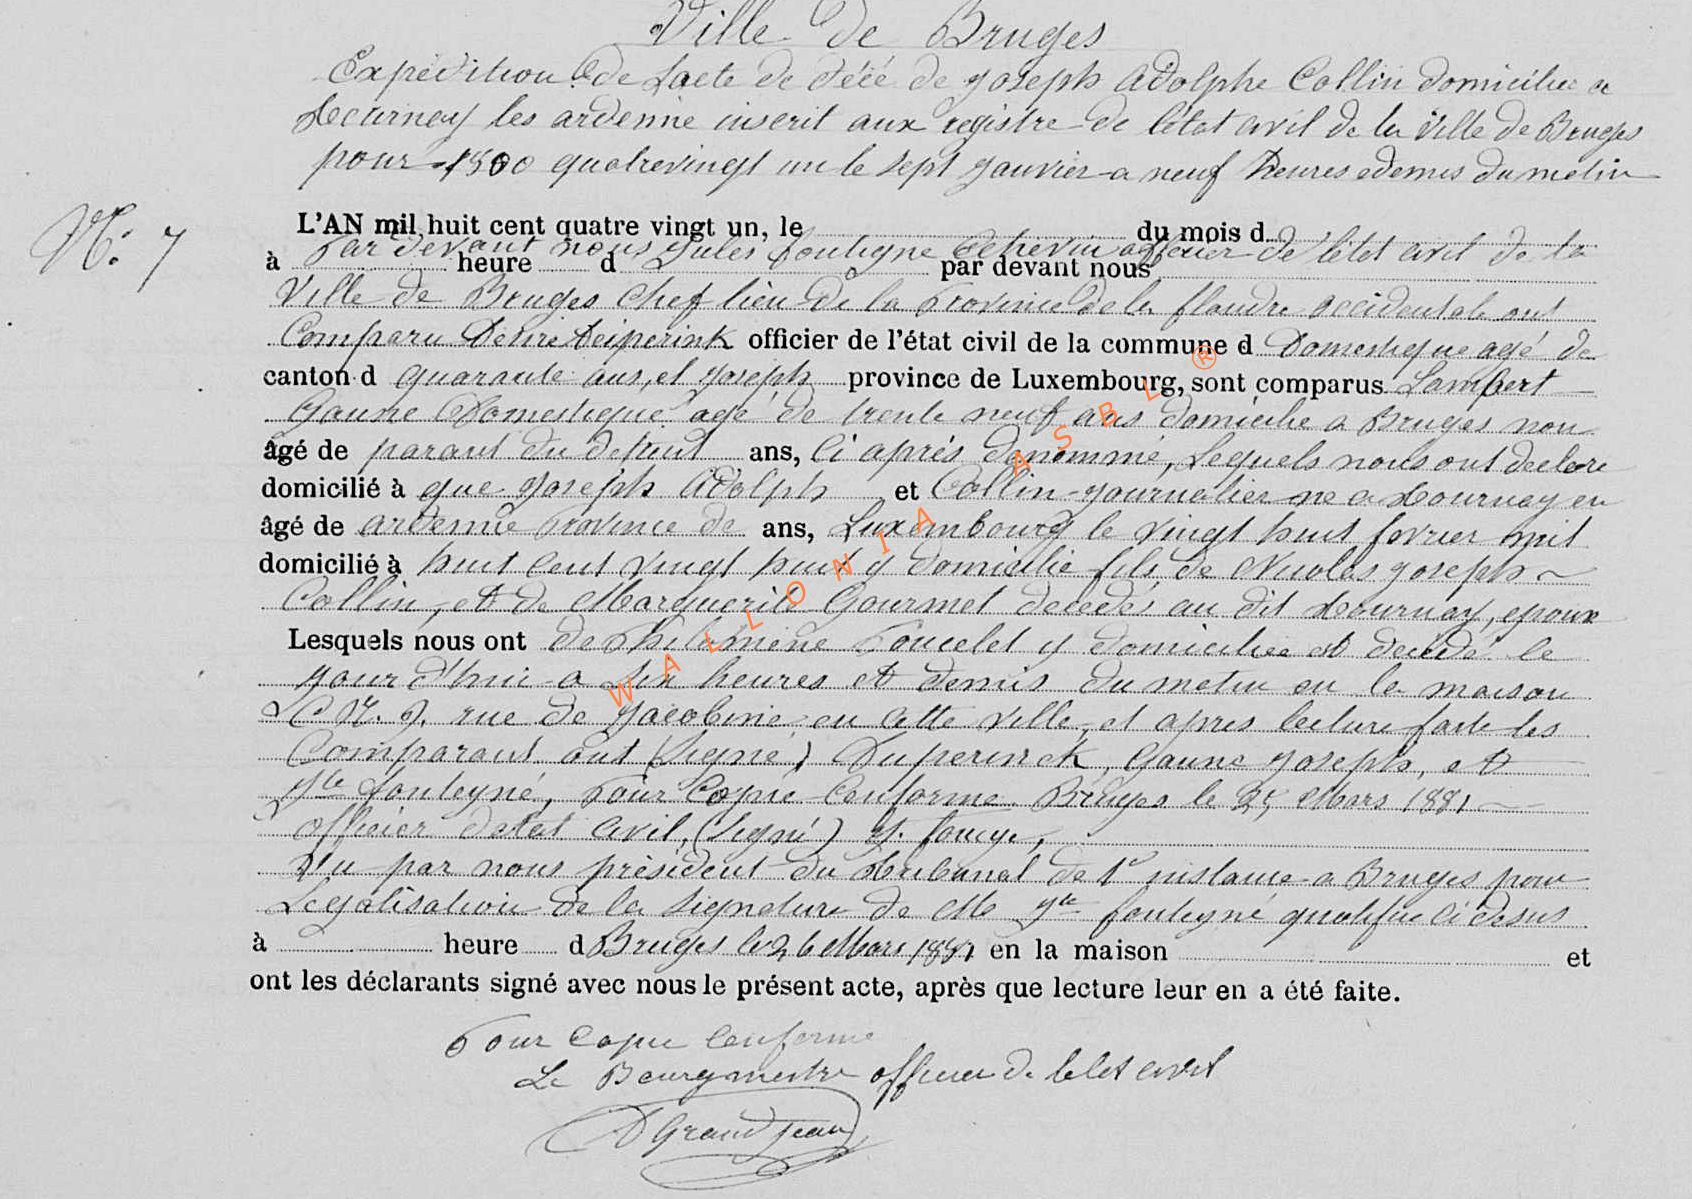 Ville de Bruges
Expédition de Lacte de décé de Joseph Adolphe Collin domicilier a
Tournay les ardenne inscrit aux registre de létat civil de la Ville de Bruges
pour 1800 quatrevingt un le sept Janvier a neuf heures edemis du matin
N: 7
L'AN mil huit cent quatre vingt un, le du mois d
Par devant nous Jules officier de létat civil de la
à heure d par devant nous
Ville de Bruges chef lieu de la Province de la flandre occidentale ont
Comparu officier de l'état civil de la commune d Domestique agé de
canton d quarante ans, et Joseph province de Luxembourg, sont comparus Lambert
Gaune Domestique agé de trente neuf ans domicilie a Bruges non
âgé de parant du defunt ans, Ci aprés denommé, Lequels nous ont declare
domicilié à que Joseph Adolph et Collin Journalier ne a Tournay en
âgé de ardenne Province de ans, Luxembourg le vingt huit fevrier mil
domicilié à huit cent vingt huit y domicilie fils de Nicolas Joseph
Collin, et de Marguerite Gourmet decedés au dit Tournay, epoux
Lesquels nous ont de Philomène Poncelet y domiciliée et décédé le
Jour d'hui a six heures et demis du matin en la maison
rue de Jacobine en cette ville, et apres lecture faite les
Comparant ont (Signé) Duperinck, Gaune Joseph, et
Jle fonteyne, Pour Copie Conforme Bruges le 25 Mars 1881
officier detat Civil, (Signé)
Vu par nous président du tribunal de 1e instance a Bruges pour
Legalisation de la Signature de Mr Jle fonteyné qualifié ci desus
à heure d Bruges le 26 Mars 1881 en la maison et
ont les déclarants signé avec nous le présent acte, après que lecture leur en a été faite.
Pour Copie Conforme
Le Bourgmestre officier de lelet civil
Grandjean
WALLONIA ASBL ®